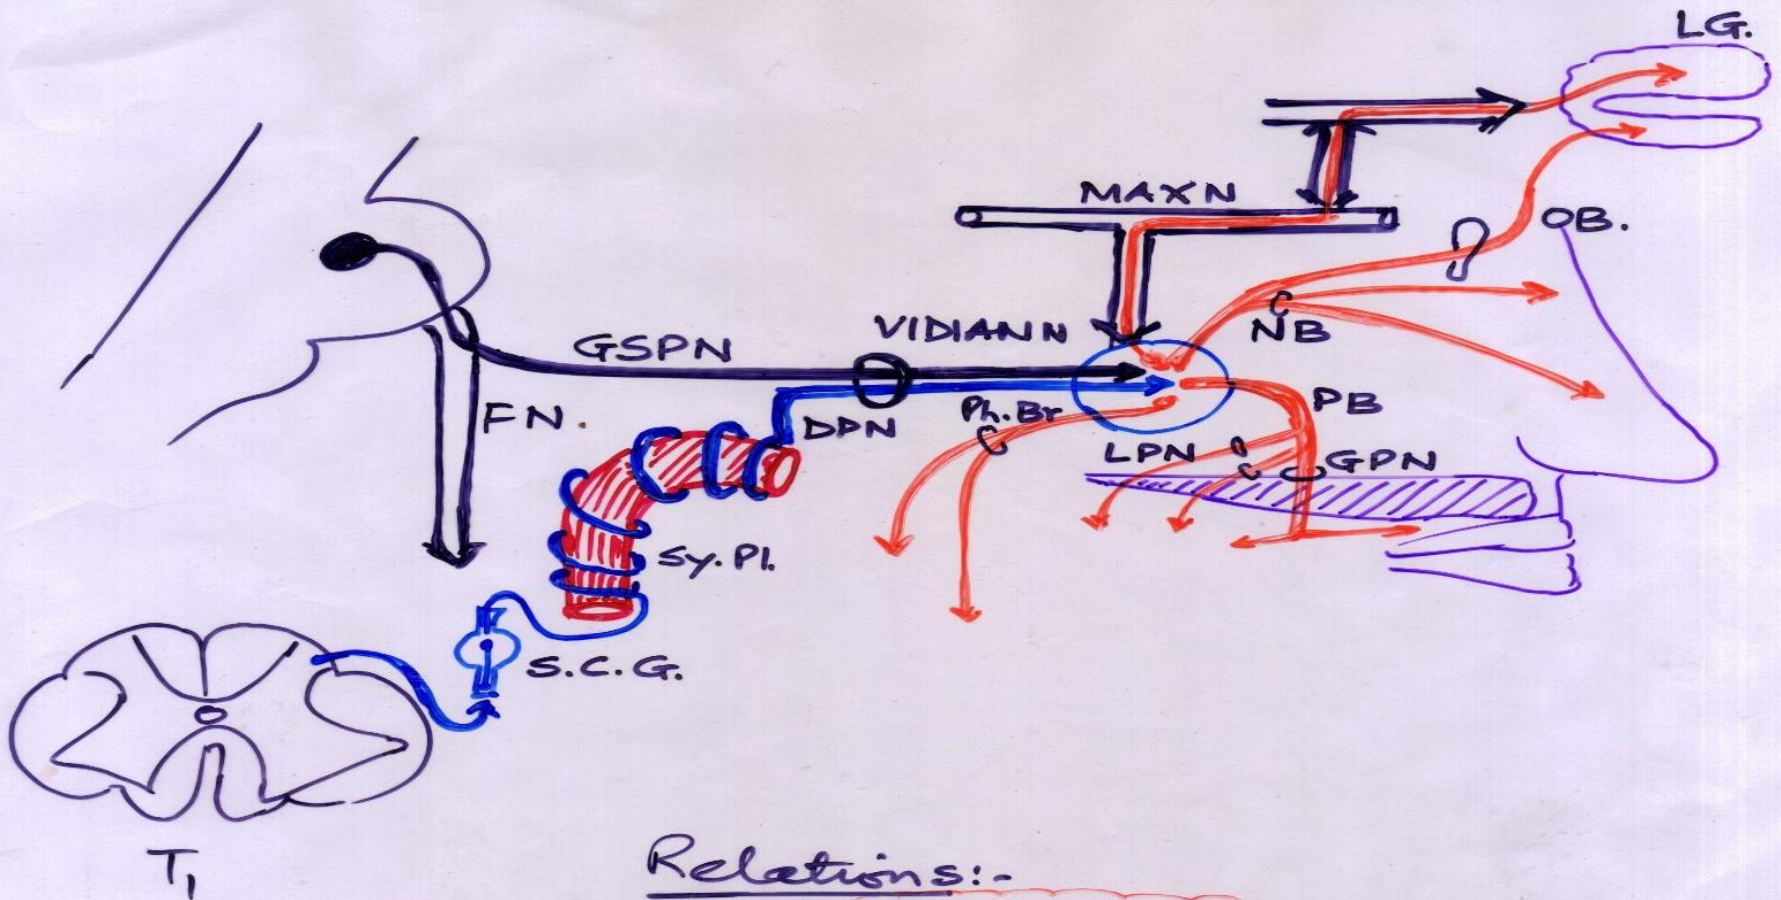 LG.
MAXN
OB.
VIDIAN N
NB
GSPN
FN.
DPN
Ph.Br
PB
LPN
GPN
Sy.Pl.
S.C.G.
T1
Relations:-